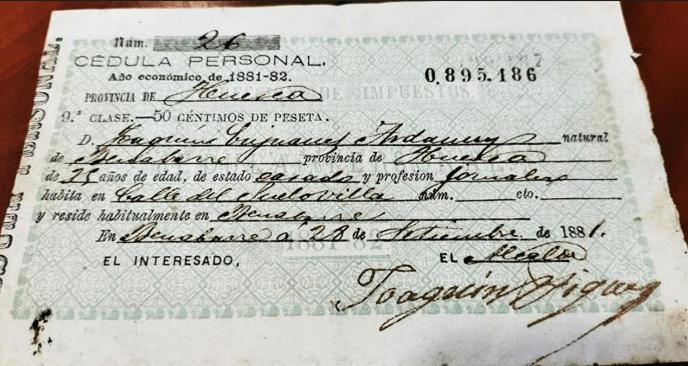 Núm. 26
CÉDULA PERSONAL.
Año económico de 1881-82.
0,895.186
PROVINCIA DE Huesca
DE IMPUESTOS
9.ª CLASE.—50 CÉNTIMOS DE PESETA.
D. natural
de Benabarre provincia de Huesca
de años de edad, de estado casado y profesion jornalero
habita en Calle del núm. cto.
y reside habitualmente en Benabarre
En Benabarre á 28 de Setiembre de 1881.
EL INTERESADO,
EL Alcalde
Joaquín